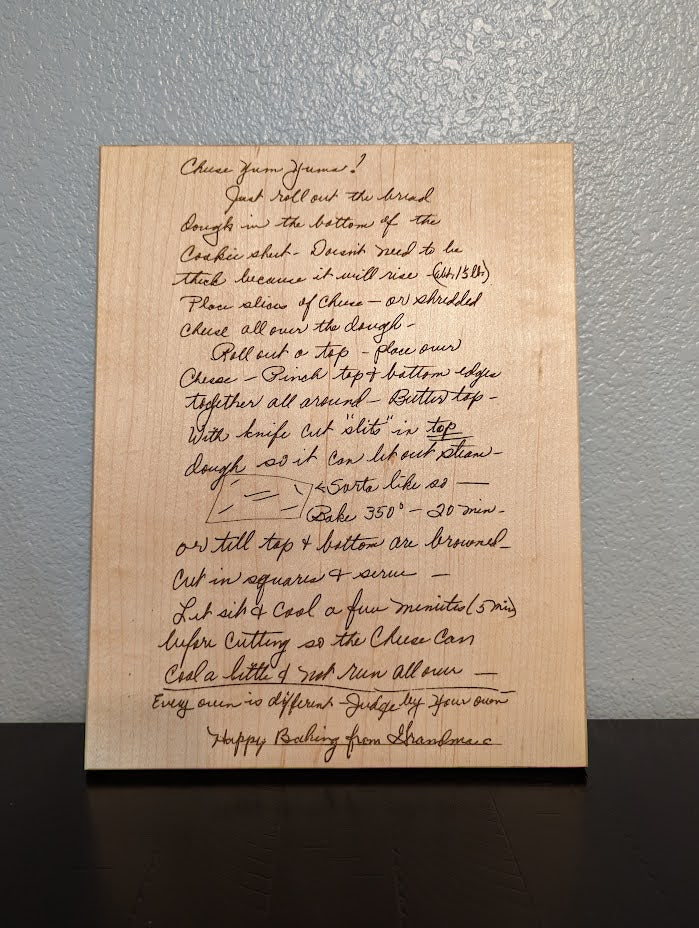 Cheese Yum Yums!
Just roll out the bread
dough in the bottom of the
Cookie sheet - Doesn't need to be
thick because it will rise - (abt. 1½ lb)
Place slices of cheese - or shredded
cheese all over the dough -
Roll out a top - place over
Cheese - Pinch top & bottom edges
together all around - Butter top -
With knife cut "slits" in top
dough so it can let out steam -
← Sorta like so —
Bake 350° - 20 min -
or till top & bottom are browned -
Cut in squares & serve -
Let sit & cool a few minutes (5 min)
before cutting so the cheese can
cool a little & not run all over —
Every oven is different - Judge by your own
Happy Baking from Grandma